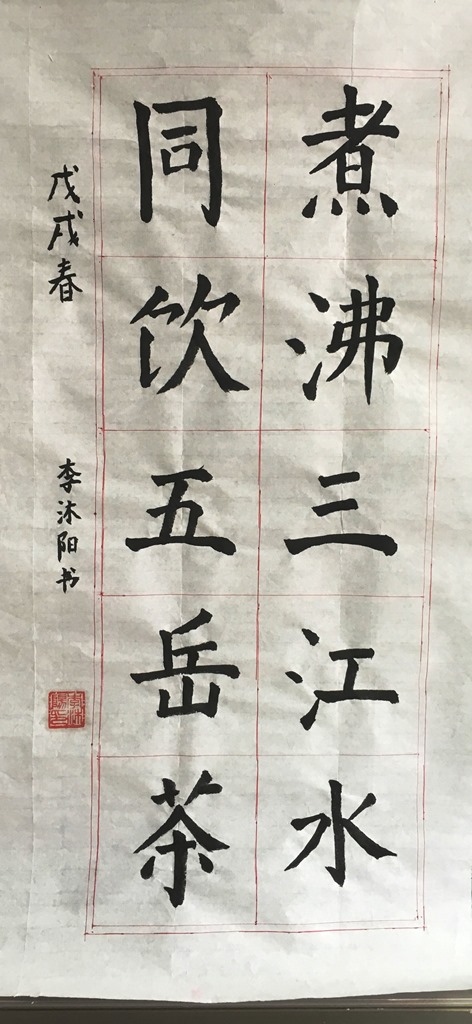 煮沸三江水
同饮五岳茶
戊戌春
李沐阳书